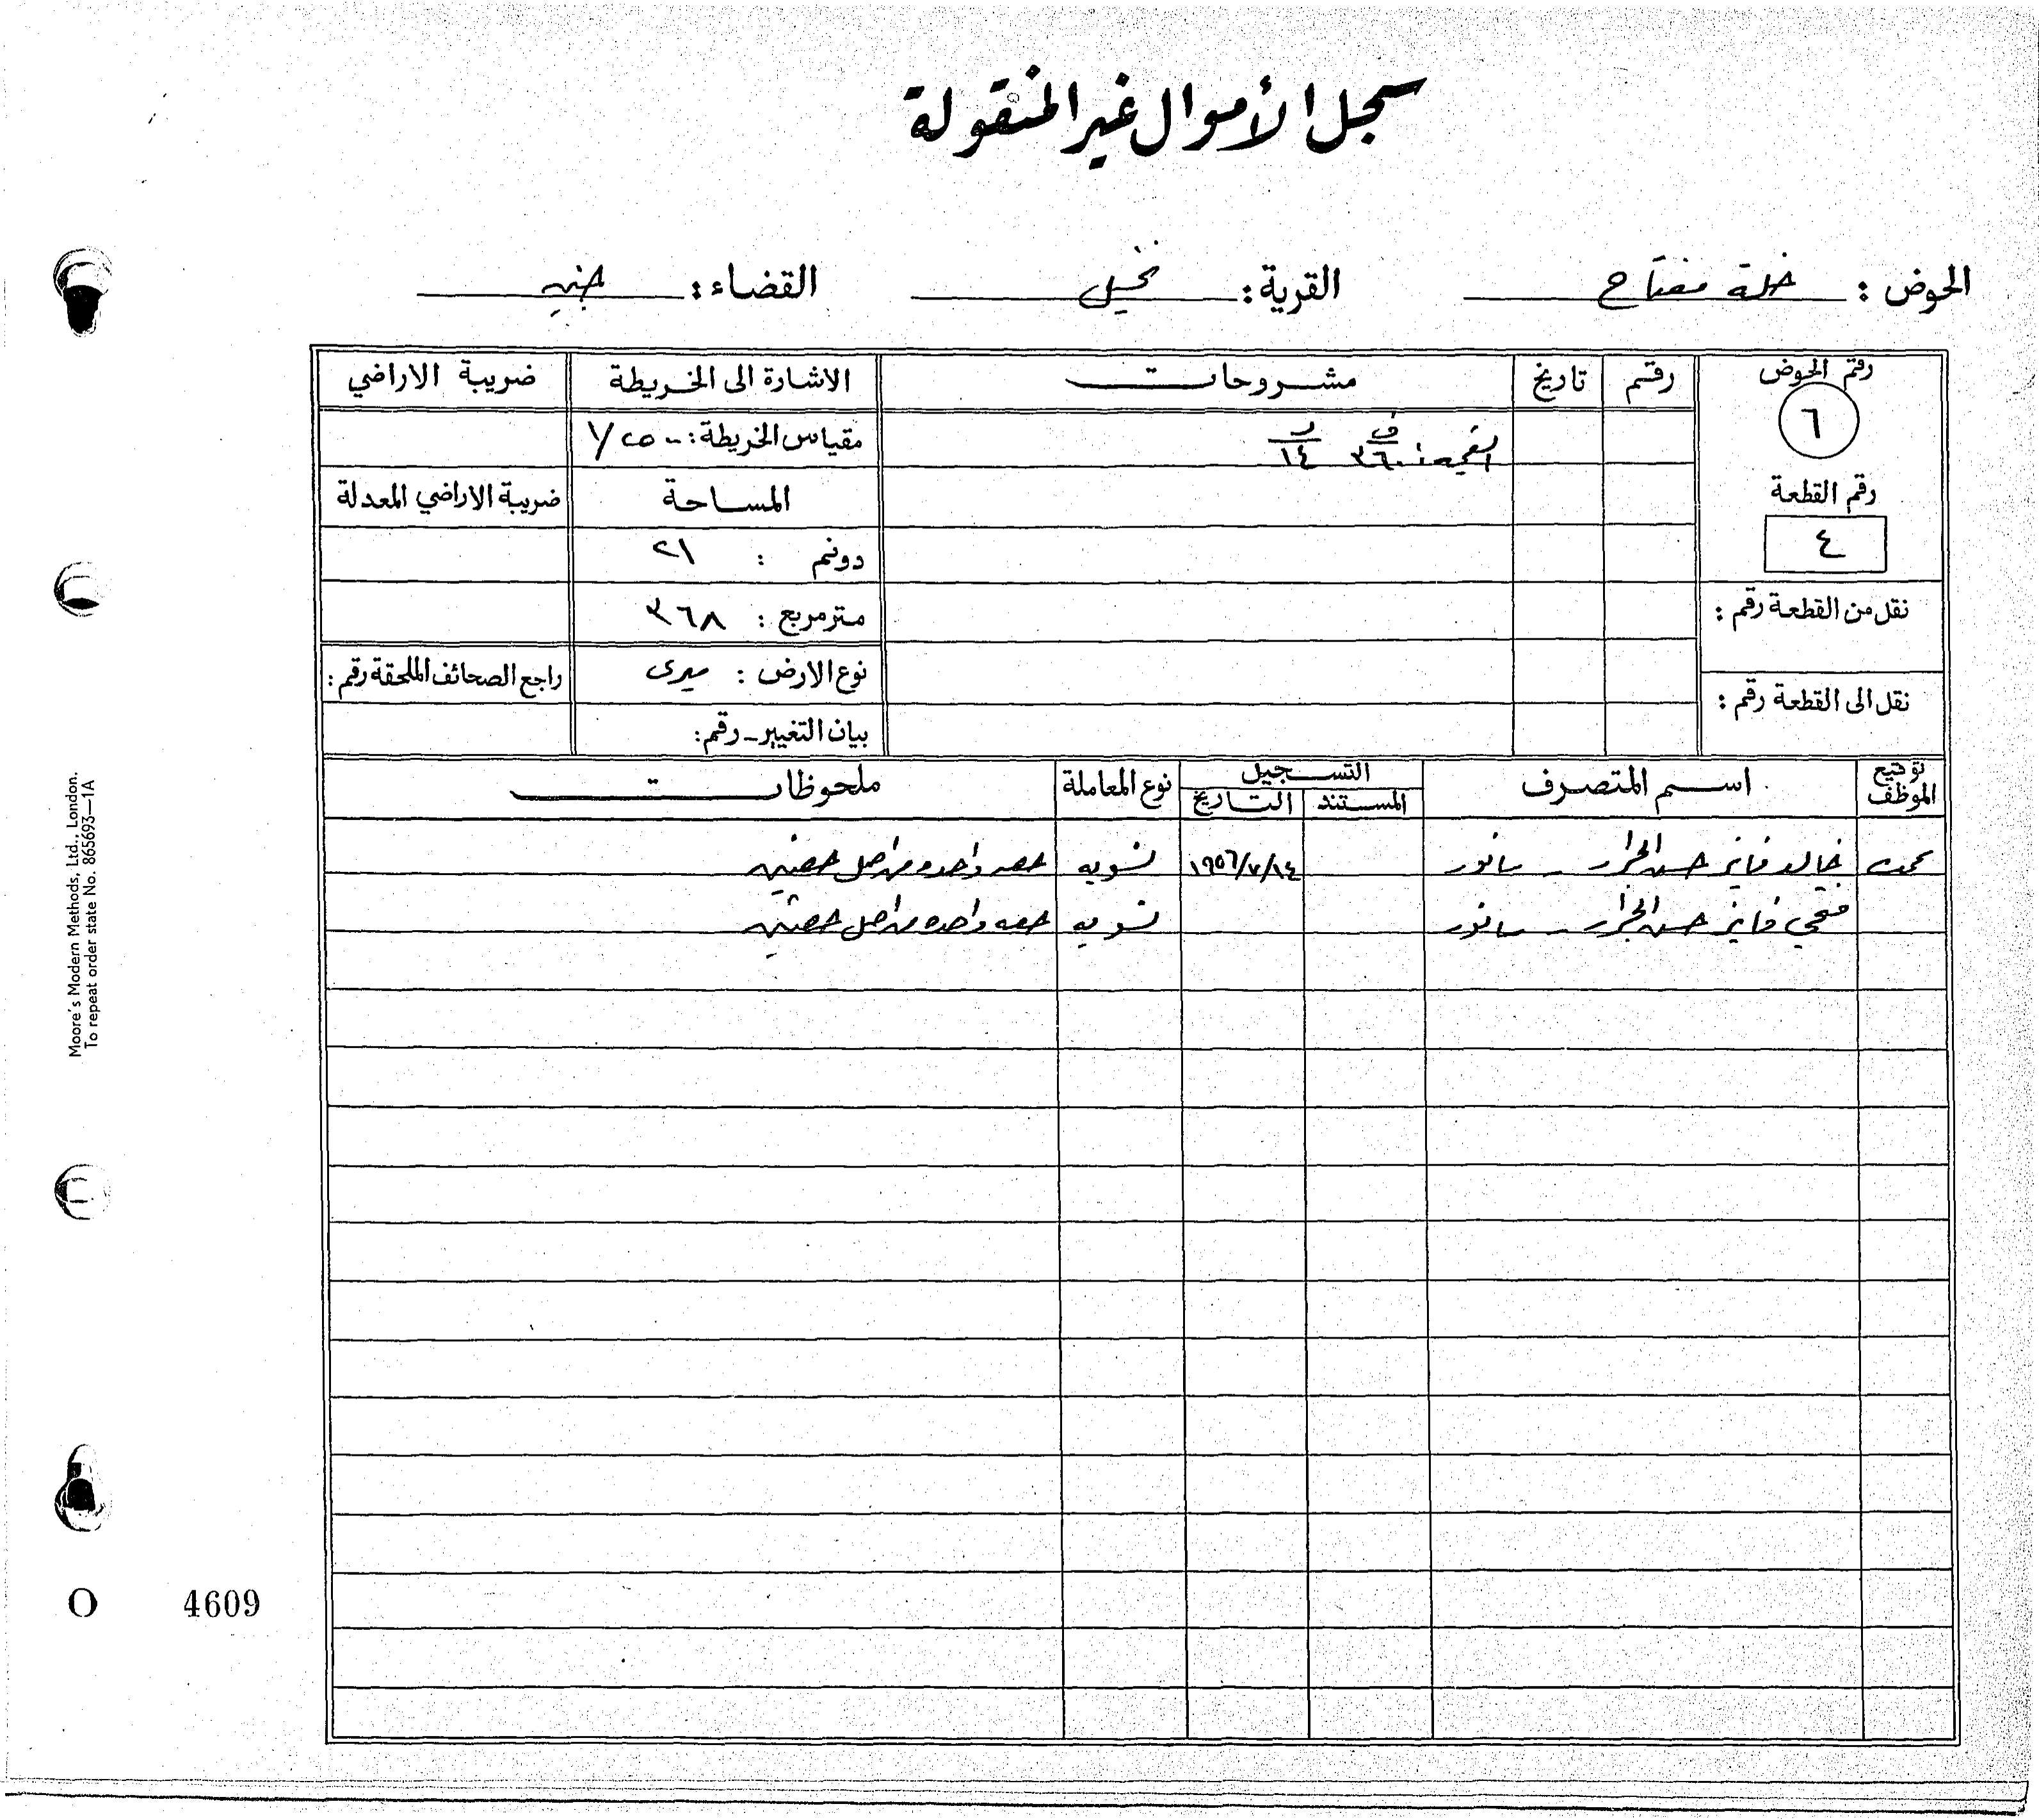 سجل الأموال غير المنقولة
الحوض : خلة مفتاح القرية : نخيل القضاء : جنين
رقم الحوض رقم تاريخ مشروحات الاشارة الى الخريطة ضريبة الاراضي
٦ القيمة : ف ٣٦٠ ر ١٤ مقياس الخريطة : ١/٢٥٠٠
رقم القطعة المساحة ضريبة الاراضي المعدلة
٤ دونم : ٢١
نقل من القطعة رقم : مترمربع : ٣٦٨
نوع الارض : ميرى راجع الصحائف الملحقة رقم :
نقل الى القطعة رقم : بيان التغيير - رقم :
توقيع الموظف اسم المتصرف التسجيل نوع المعاملة ملحوظات
المستند التاريخ
خالد فايز حسن الجرار - سانور ١٩٥٦/٧/١٤ تسويه حصه واحده من اصل حصتين
فتحي فايز حسن الجرار - سانور تسويه حصه واحده من اصل حصتين
Moore's Modern Methods, Ltd., London.
To repeat order state No. 865693—1A
O 4609